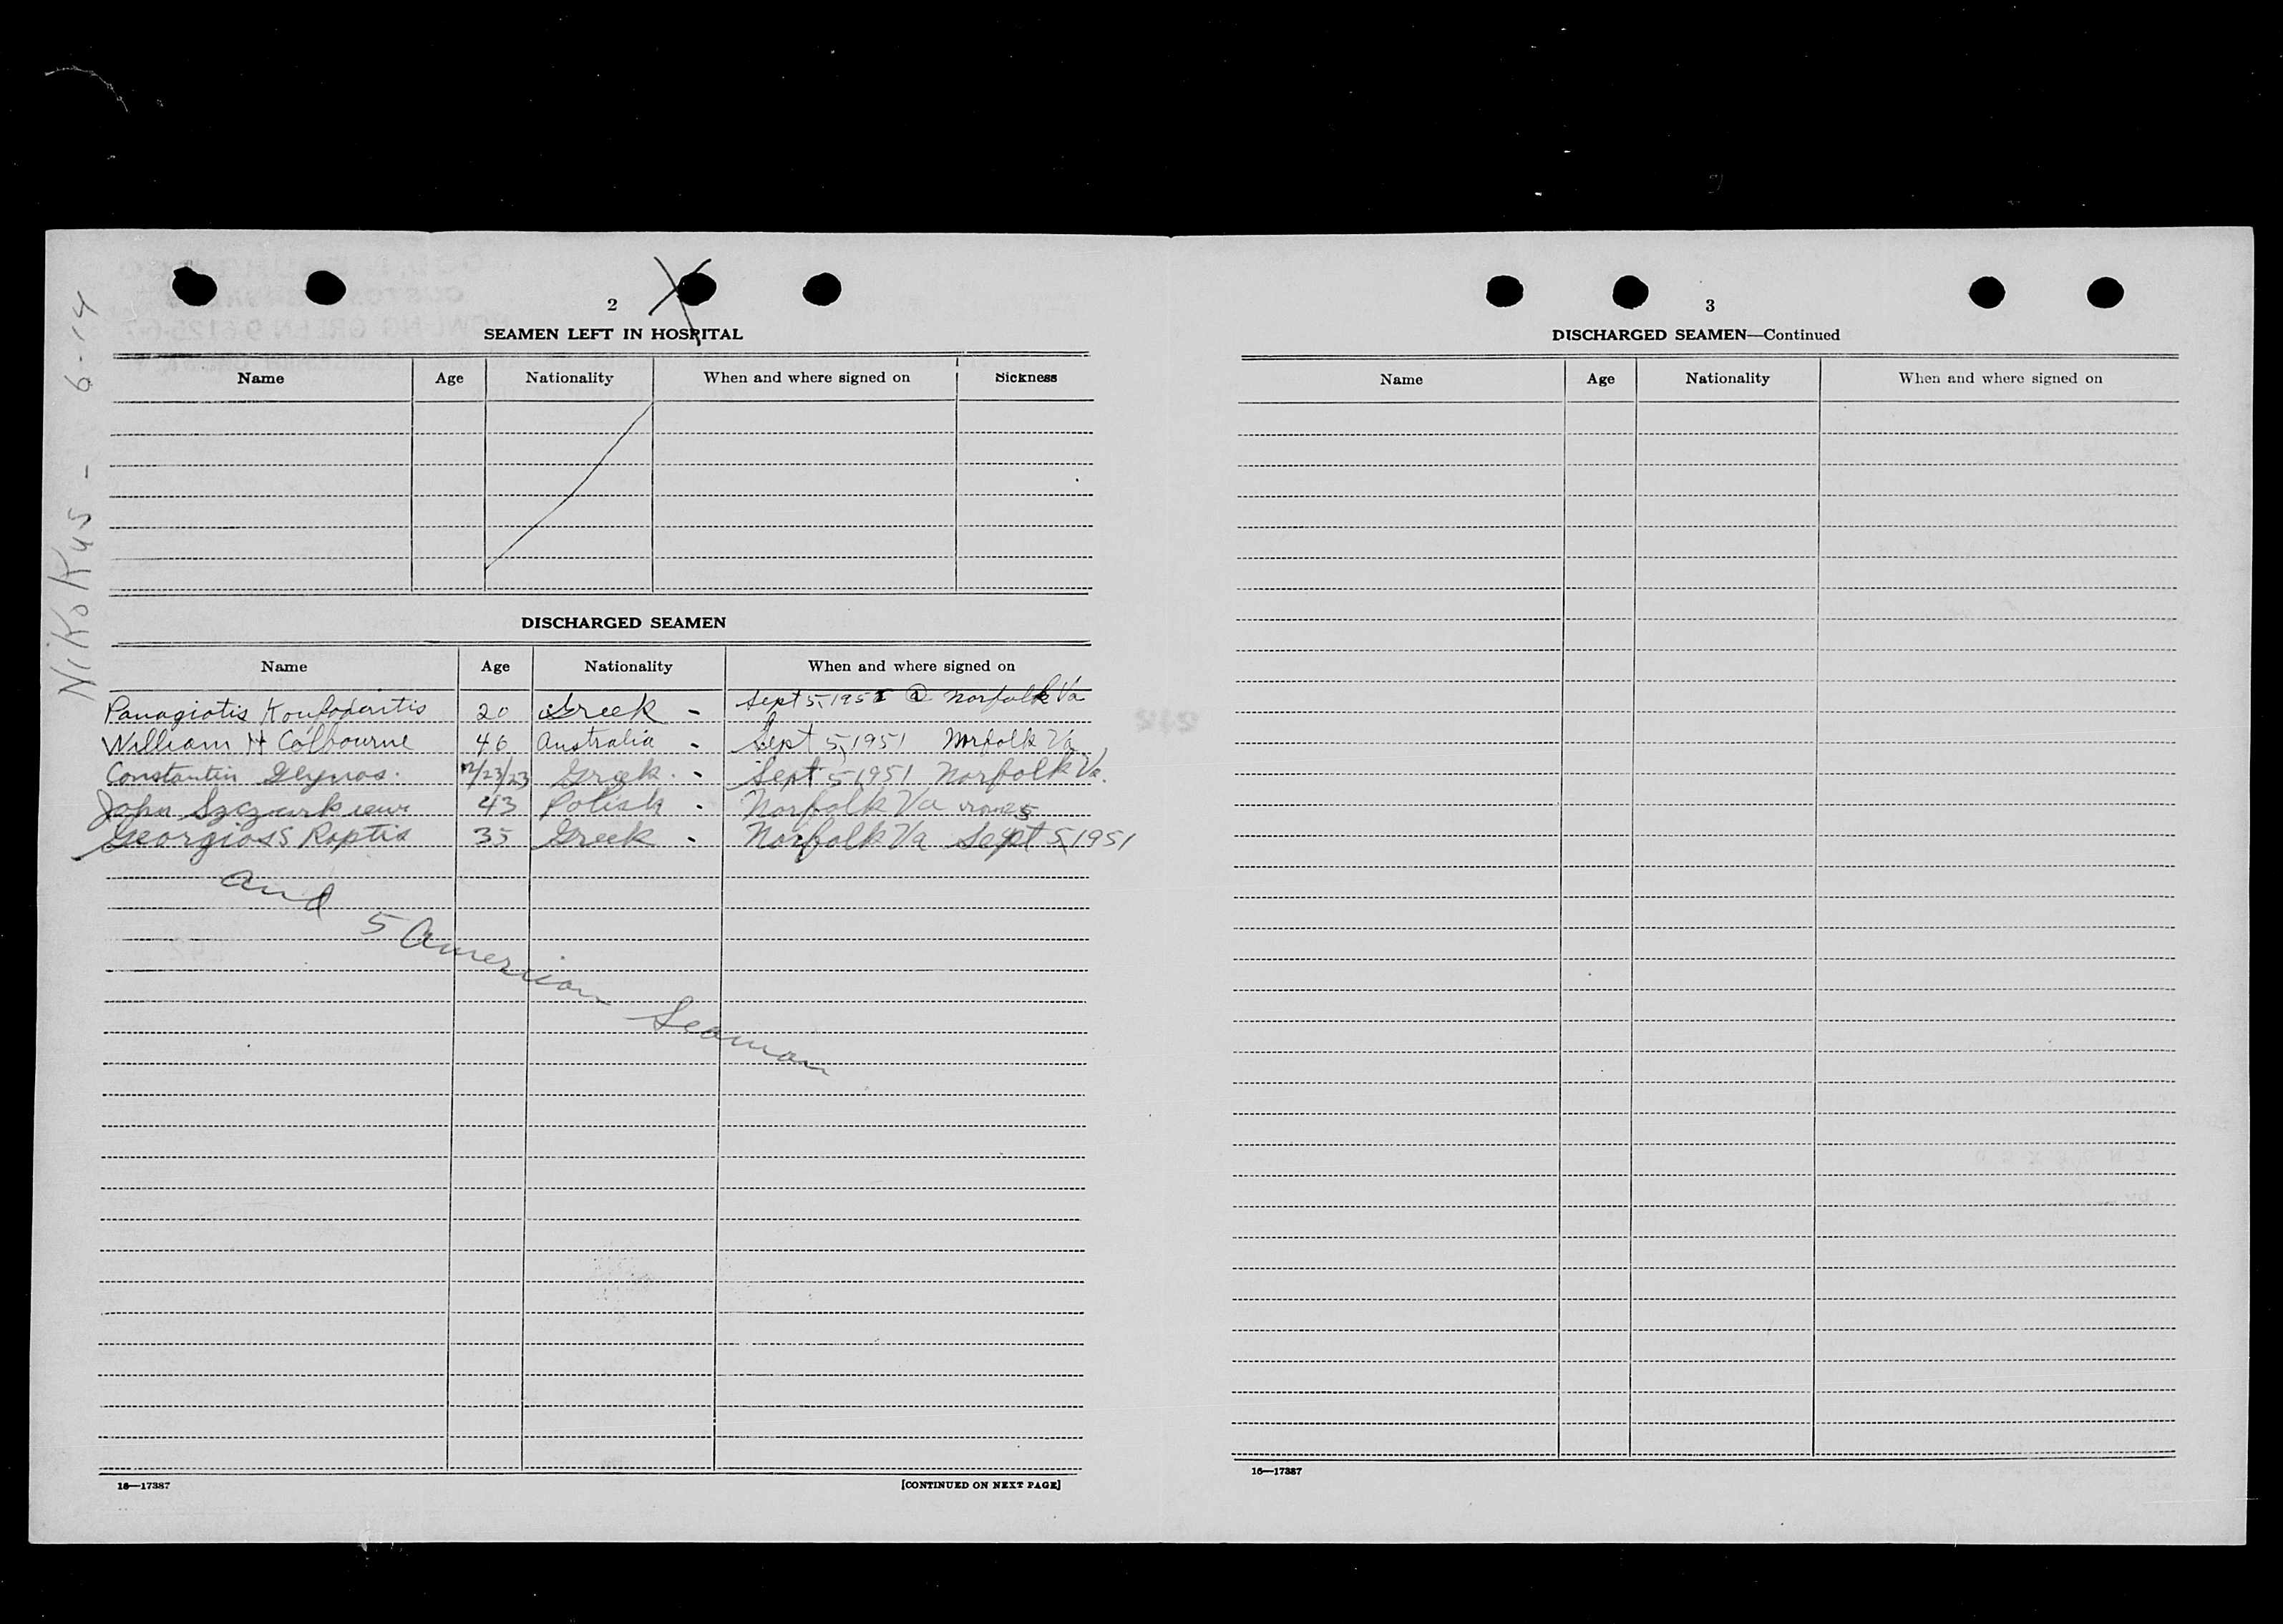 NiKoKus - 6-14
2
SEAMEN LEFT IN HOSPITAL
Name Age Nationality When and where signed on Sickness
DISCHARGED SEAMEN
Name Age Nationality When and where signed on
Panagiotis 20 Greek - Sept 5, 1951 @ Norfolk Va
William H Colbourne 46 Australia - Sept 5, 1951 Norfolk Va
Constantin Glynos. 12/23/23 Greek - Sept 5, 1951 Norfolk Va.
John 43 Polish - Norfolk Va
Georgios S Raptis 35 Greek - Norfolk Va Sept 5, 1951
and
5 American Seaman
16—17387 [CONTINUED ON NEXT PAGE]
3
DISCHARGED SEAMEN—Continued
Name Age Nationality When and where signed on
16—17387